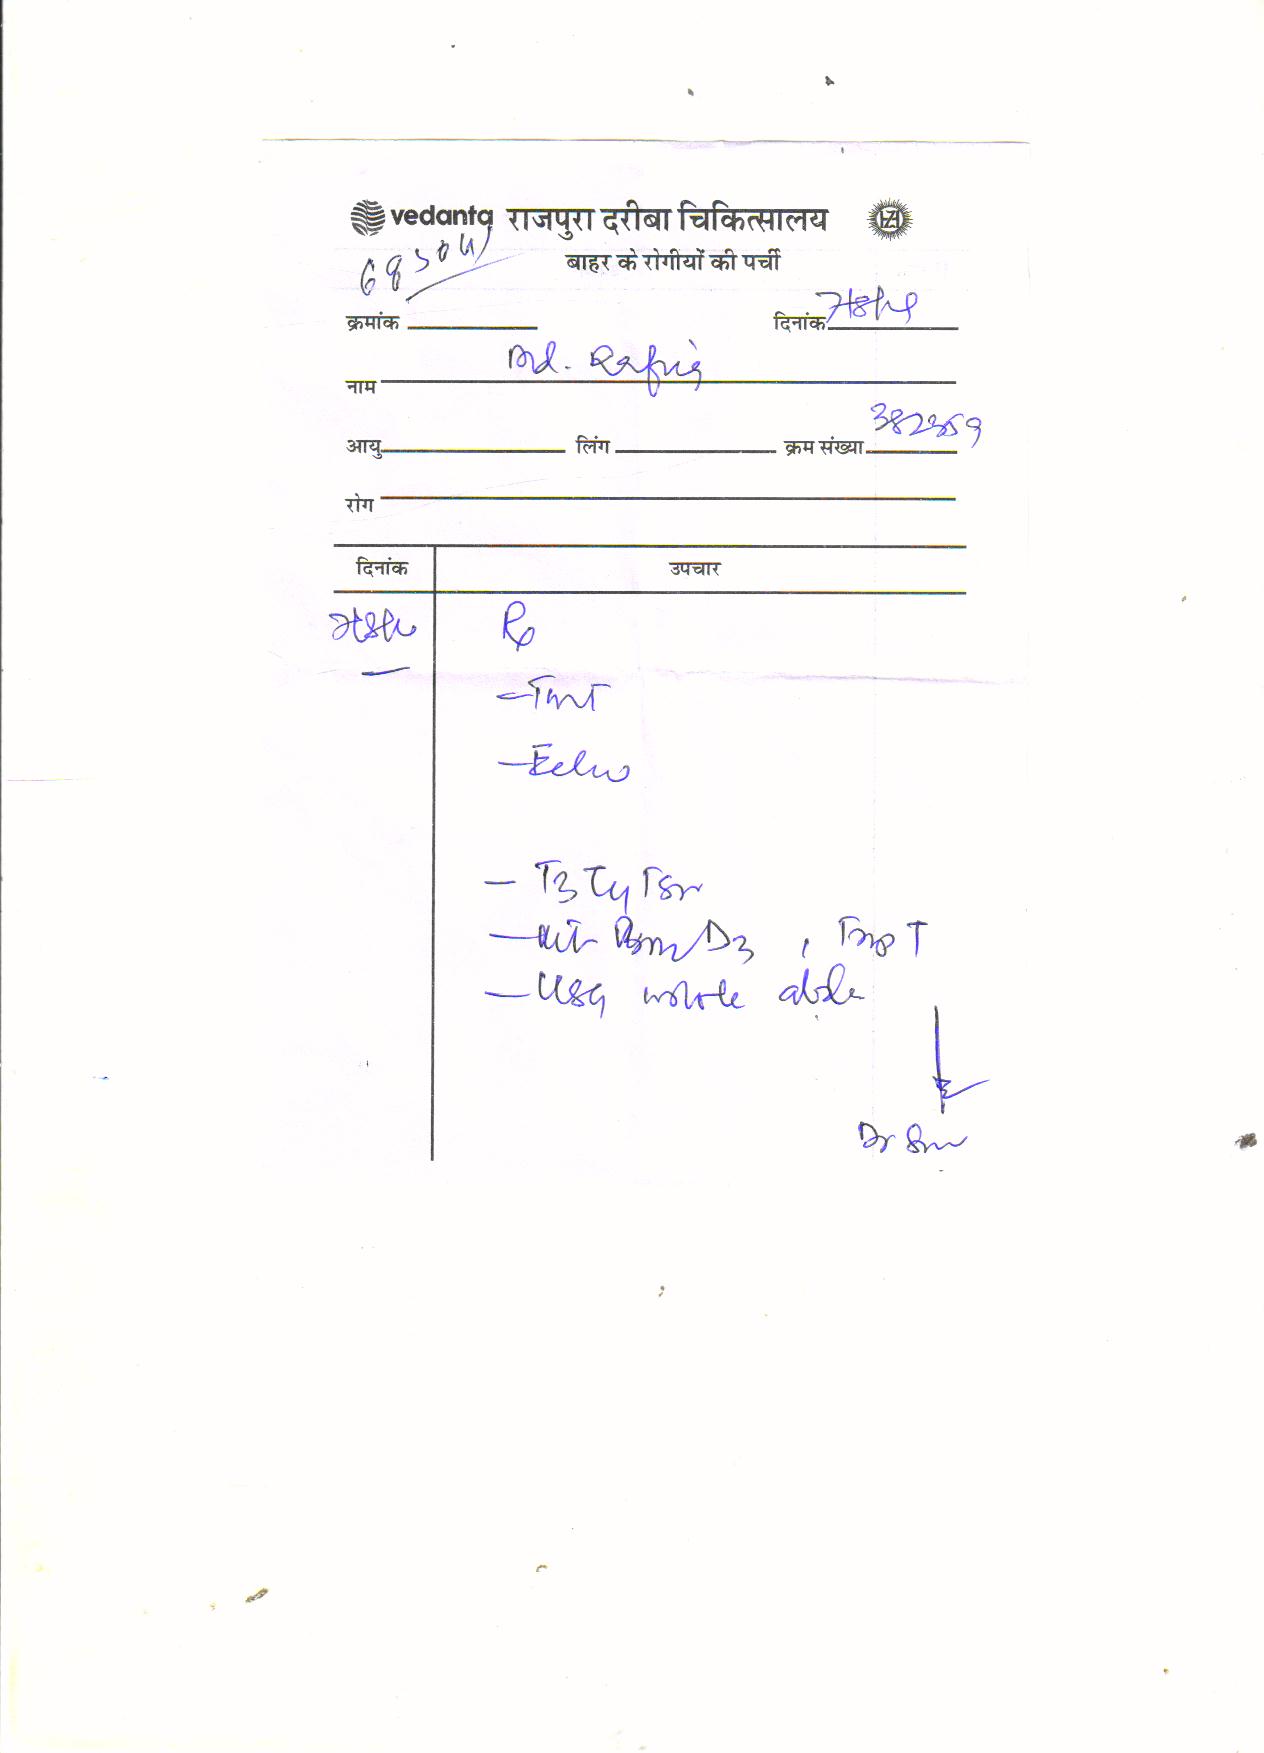 vedanta राजपुरा दरीबा चिकित्सालय HZL
बाहर के रोगीयों की पर्ची
क्रमांक दिनांक
नाम Md. Rafiq
आयु लिंग क्रम संख्या 382359
रोग
दिनांक उपचार
Rx
- TMT
- Echo
- T3 T4 TSH
- Vit B12/D3 , Trop T
- USG whole abd
Dr